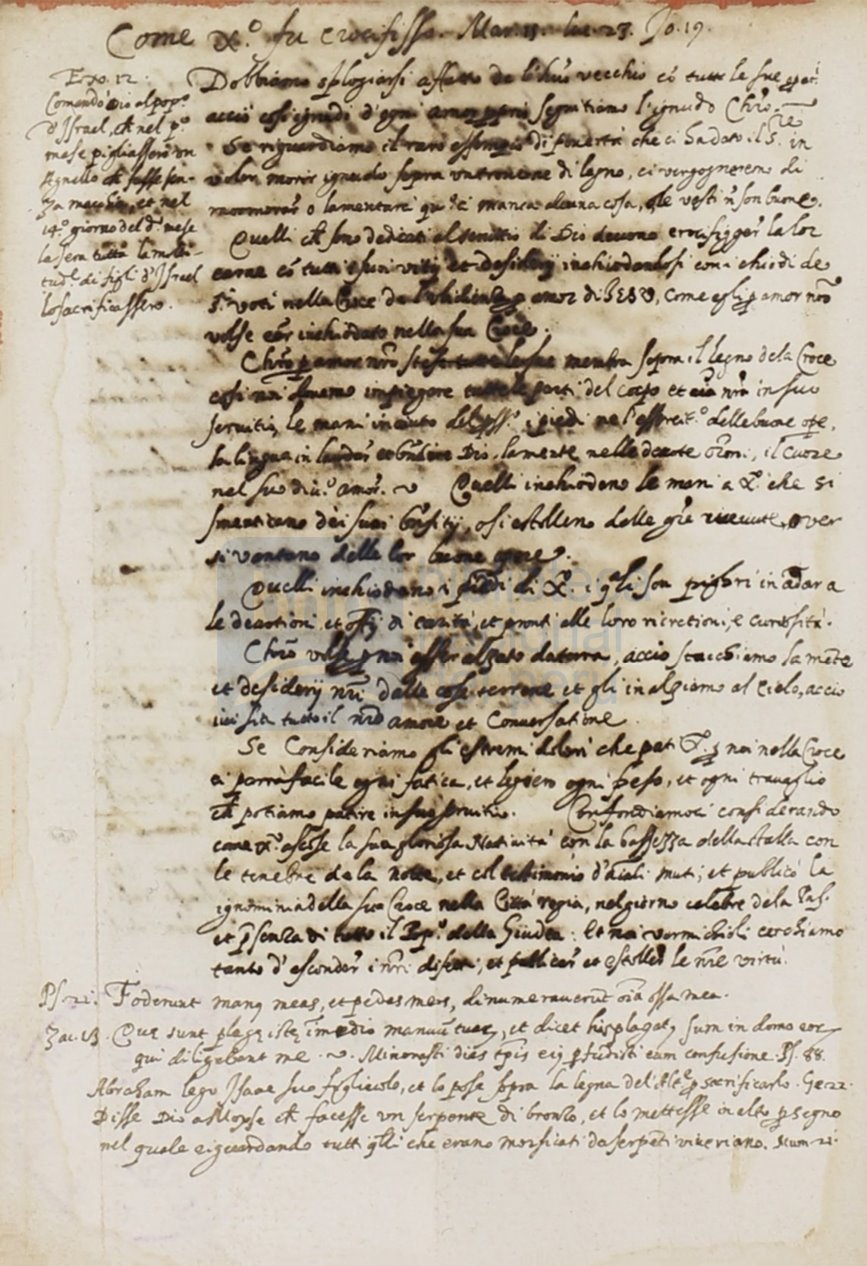 Come X.° fu crocifisso. Mar. 15. Luc. 23. Jo. 19.
Exo. 12.
Comandò Dio al pop.°
d'Israel, ch nel p.°
mese pigliassero un
Agnello ch fusse sen-
za macchia, et nel
14.° giorno del d.° mese
la sera tutta la molti-
tud.e di figli d'Israel
lo sacrificassero.
Dobbiamo spogliarsi affatto de l'huō vecchio cō tutte le sue
acciò così ignudi d'ogni amor ppriō seguitiamo l'ignudo Chrō.
Se riguardiamo il raro essempio di povertà che ci ha dato il S.re in
voler morir ignudo sopra un troncone di legno, ci vergogneremo di
mormorar o lamentarci qn ci manca alcuna cosa, ò le vesti n son buone.
Quelli ch sono dedicati al servitio di Dio devono crocifigger la lor
carne cō tutti i suoi vitij et desiderij inchiodandosi con i chiodi de
voti nella Croce de l'obidienza p amor di JESU, come egli p amor nrō
volse eēr inchiodato nella sua Croce.
Chrō p amor nrō stese tutte le sue membra sopra il legno dela Croce
così noi devemo impiegare tutte le parti del corpo et nrā in suo
servitio, le mani in aiuto del pss.°, i piedi ne l'essercit.° delle buone ope,
la lingua in laudar et bndire Dio, la mente nelle devote orōni, il cuore
nel suo div.° amor. Quelli inchiodano le mani a X.° che si
smenticano dei suoi bnfitij, o si estolleno delle grē ricevute, over
si vantano delle lor buone opere.
Quelli inchiodano i piedi di X.° i qli son pigri in andar a
le devotioni, et offitij di carità, et pronti alle loro ricretioni, e curiosità.
Chrō volse p noi esser alzato da terra, acciò stacchiamo la mēte
et desiderij nrī dalle cose terrene et gli inalziamo al Cielo, acciò
ivi sia tutto il nrō amore et Conversatione.
Se Consideriamo gli estremi dolori che patì X.° p noi nella Croce
ci parrà facile ogni fatica, et legiero ogni peso, et ogni travaglio
ch potiamo patire in suo servitio. Confondiamoci considerando
come X.° ascose la sua gloriosa Natività con la bassezza della stalla con
le tenebre de la notte, et col testimonio d'aīali muti; et publicò la
ignominia della sua Croce nella Città regia, nel giorno celebre dela Pas.
et p̄senza di tutto il Pop.° della Giudea: Et noi vermicholi cerchiamo
tanto d'asconder i nrī difetti, et publicar et estoller le nrē virtù.
Ps. 21. Foderunt manq meas, et pedes meos, dinumeraverūt oīa ossa mea.
Zac. 13. Que sunt plagę istę ī medio manuū tuarq, et dicet his plagatq sum in domo eorq
qui diligebant me. Minorasti dies tpīs eiq pfudisti eum confusione. Ps. 88.
Abraham legò Isaac suo figliuolo, et lo pose sopra la legna del'Alt.e p sacrificarlo. Ge. 22.
Disse Dio a Moyse ch facesse un serpente di bronzo, et lo mettesse in alto p segno
nel quale riguardando tutti qlli che erano morsicati da serpēti viveriano. Num. 21.